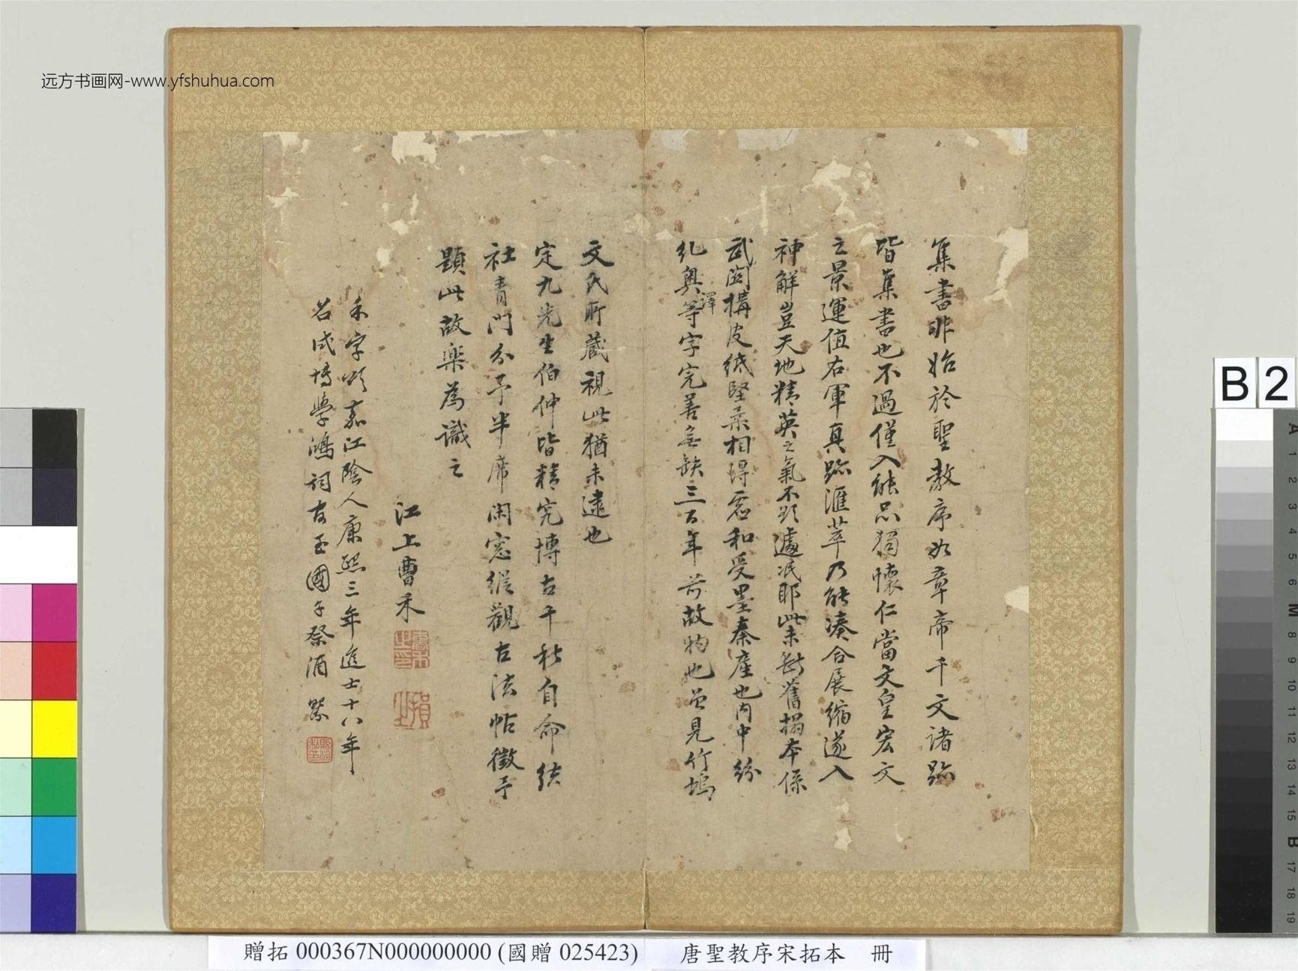 远方书画网-www.yfshuhua.com
集書非始於聖教序如章帝千文諸跡
皆集書也不過僅入能品獨懷仁當文皇宏文
之景運值右軍真跡滙萃乃能湊合展縮遂入
神解豈天地精英之氣不欲遽泯耶此未斷舊搨本係
武岡構皮紙堅柔相得
和受墨秦產也內中紛
糺奧等字完善無缺三百年前故物也曾見竹塢
澤
文氏所藏視此猶未逮也
定九先生伯仲皆精究博古千秋自命結
社青門分予半席閑窓縱觀古法帖徵予
題此故樂為識之
江上曹禾
禾字頌嘉江陰人康熙三年進士十八年
召試博學鴻詞官至國子祭酒
B2
A 1 2 3 4 5 6 M 8 9 10 11 12 13 14 15 B 17 18 19
贈拓 000367N000000000 (國贈 025423) 唐聖教序宋拓本 冊